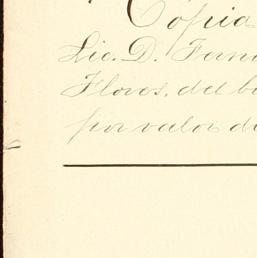 Copia
Lic. D. Fern
Flores, del b
por valor d